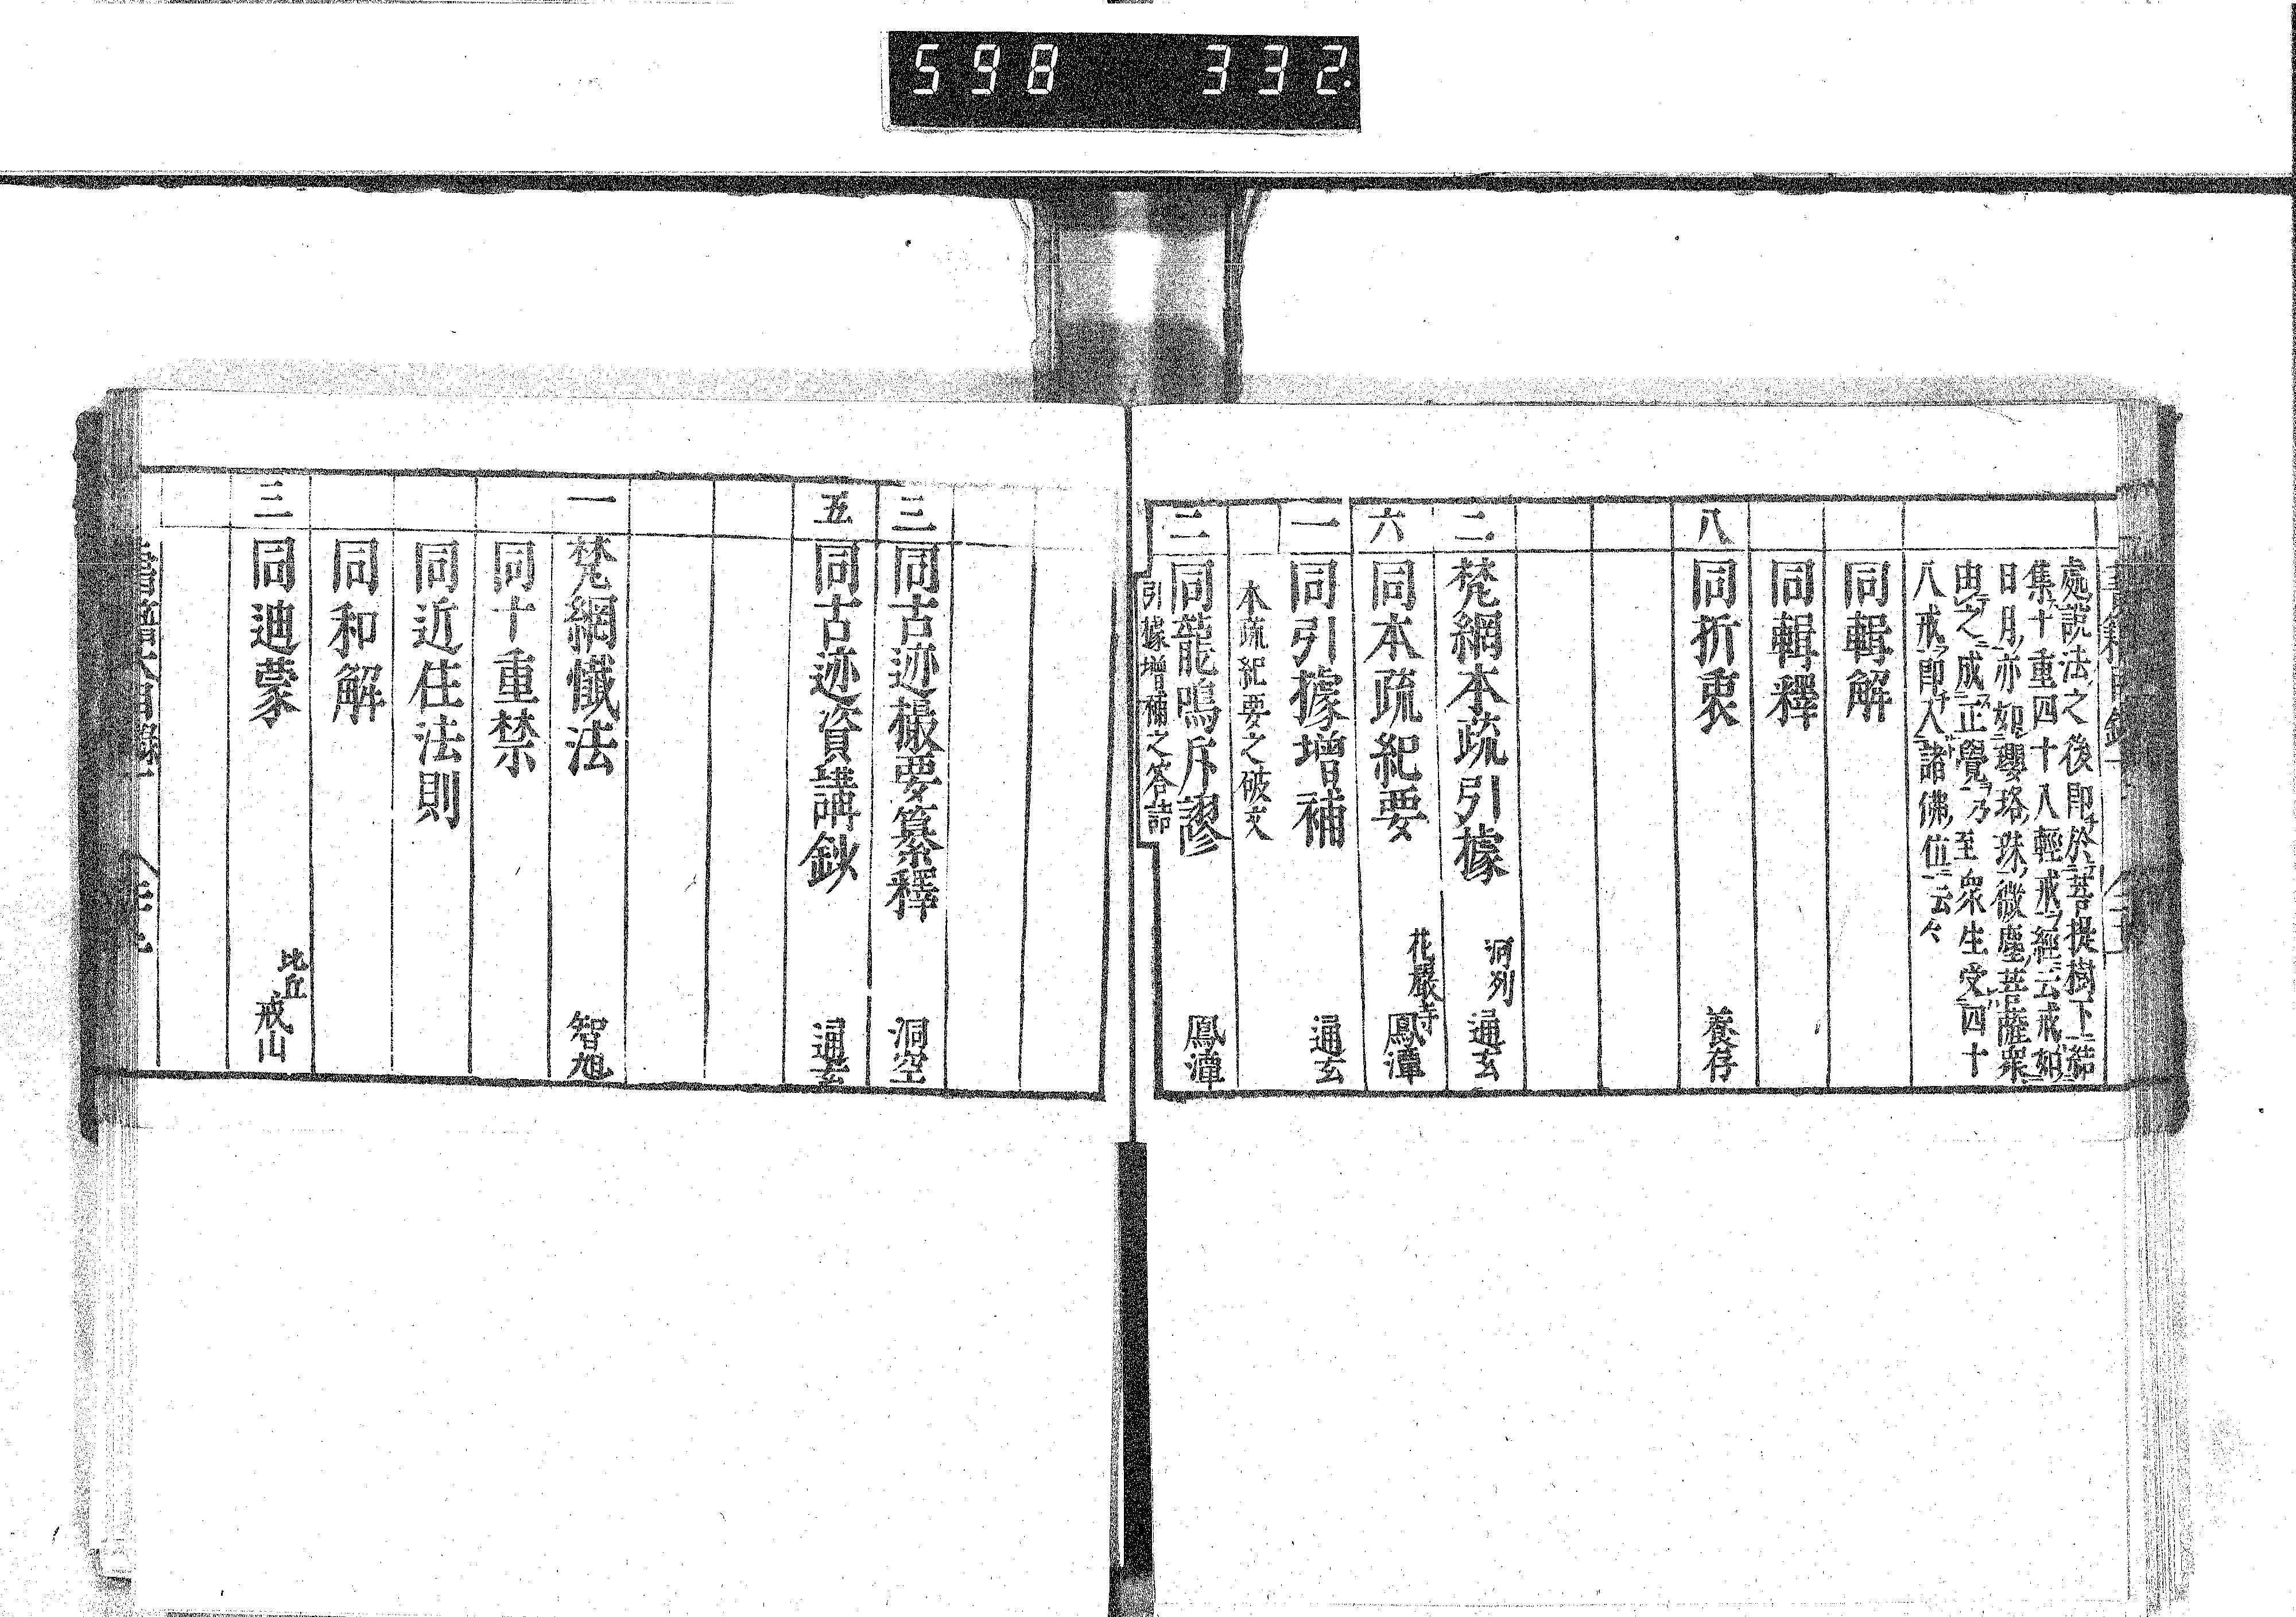 598 332.
處說法之後即於菩提樹下結
集十重四十八輕戒經云戒如
日月亦如瓔珞珠微塵菩薩衆
由之成正覺乃至衆生受四十
八戒即入諸佛位云々
同輯解
同輯釋
八 同折衷 養存
二 梵網本疏引據 洞列 通玄
六 同本疏紀要 花嚴寺 鳳潭
一 同引據增補 通玄
本疏紀要之破文
二 同龍鳴斥謬 鳳潭
引據增補之答詰
三 同古迹撮要纂釋 洞空
五 同古迹資講鈔 通玄
一 梵網懺法 智旭
同十重禁
同近住法則
同和解
三 同迪蒙 比丘 戒山